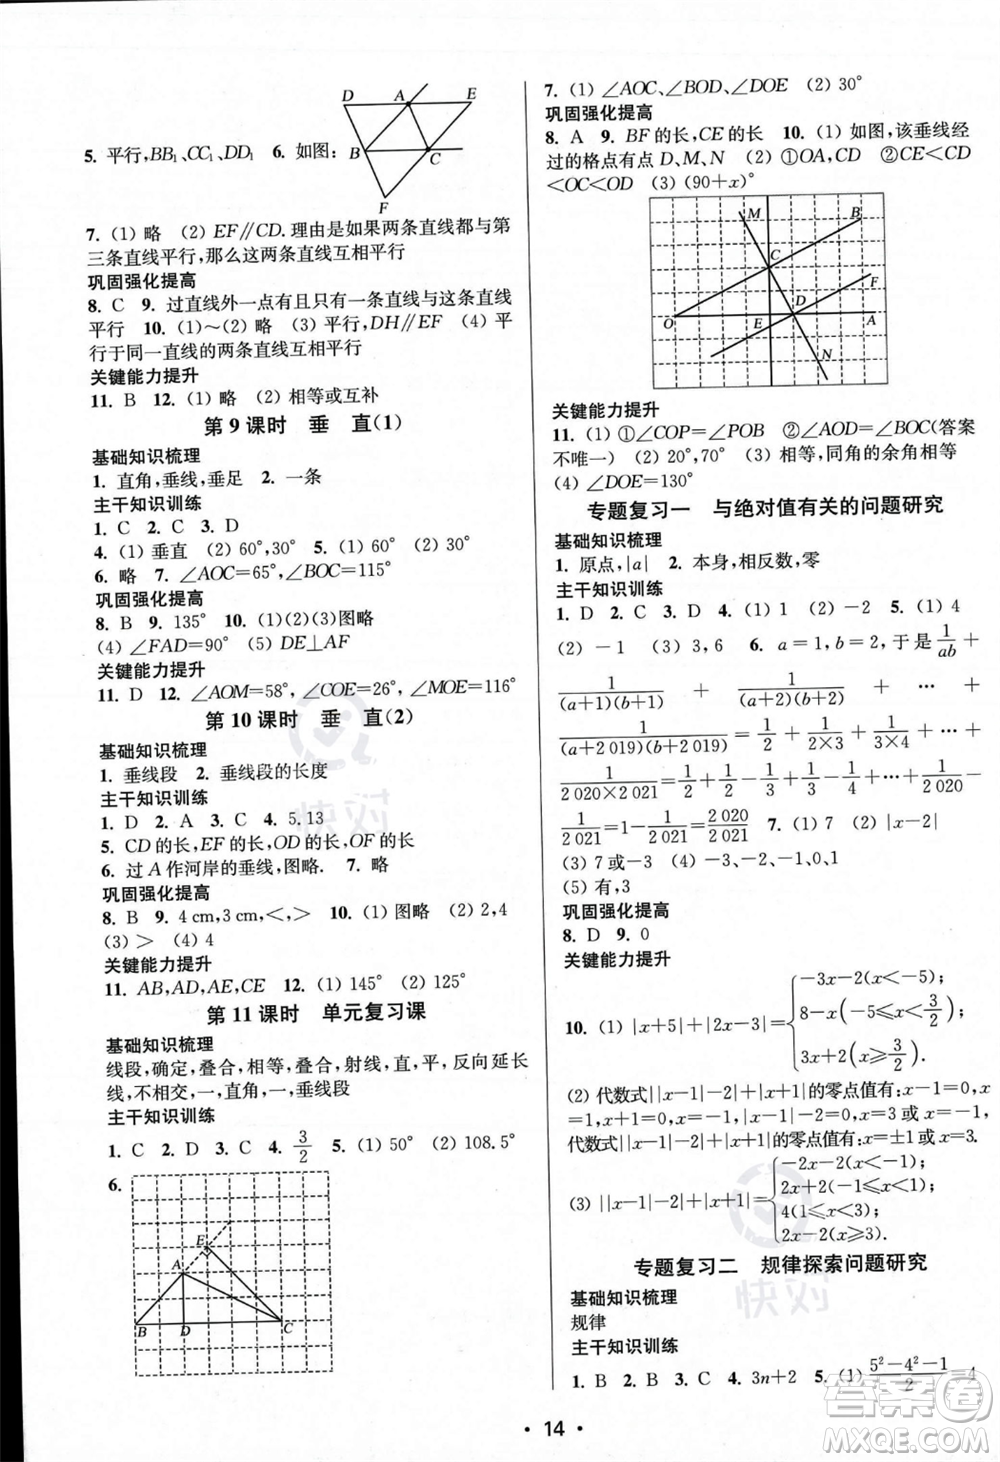 D A E
B C
F
5. 平行,BB₁、CC₁、DD₁ 6. 如图:
7. (1) 略 (2) EF∥CD. 理由是如果两条直线都与第
三条直线平行,那么这两条直线互相平行
巩固强化提高
8. C 9. 过直线外一点有且只有一条直线与这条直线
平行 10. (1)～(2) 略 (3) 平行,DH∥EF (4) 平
行于同一直线的两条直线互相平行
关键能力提升
11. B 12. (1) 略 (2) 相等或互补
第 9 课时 垂 直(1)
基础知识梳理
1. 直角,垂线,垂足 2. 一条
主干知识训练
1. C 2. C 3. D
4. (1) 垂直 (2) 60°,30° 5. (1) 60° (2) 30°
6. 略 7. ∠AOC=65°,∠BOC=115°
巩固强化提高
8. B 9. 135° 10. (1)(2)(3)图略
(4) ∠FAD=90° (5) DE⊥AF
关键能力提升
11. D 12. ∠AOM=58°,∠COE=26°,∠MOE=116°
第 10 课时 垂 直(2)
基础知识梳理
1. 垂线段 2. 垂线段的长度
主干知识训练
1. D 2. A 3. C 4. 5,13
5. CD 的长,EF 的长,OD 的长,OF 的长
6. 过 A 作河岸的垂线,图略. 7. 略
巩固强化提高
8. B 9. 4 cm,3 cm,<,> 10. (1) 图略 (2) 2,4
(3) > (4) 4
关键能力提升
11. AB,AD,AE,CE 12. (1) 145° (2) 125°
第 11 课时 单元复习课
基础知识梳理
线段,确定,叠合,相等,叠合,射线,直,平,反向延长
线,不相交,一,直角,一,垂线段
主干知识训练
1. C 2. D 3. C 4. 3/2 5. (1) 50° (2) 108.5°
6.
E
A
B D C
7. (1) ∠AOC、∠BOD、∠DOE (2) 30°
巩固强化提高
8. A 9. BF 的长,CE 的长 10. (1) 如图,该垂线经
过的格点有点 D、M、N (2) ①OA,CD ②CE<CD
<OC<OD (3) (90+x)°
M B
C F
D
O E A
N
关键能力提升
11. (1) ①∠COP=∠POB ②∠AOD=∠BOC(答案
不唯一) (2) 20°,70° (3) 相等,同角的余角相等
(4) ∠DOE=130°
专题复习一 与绝对值有关的问题研究
基础知识梳理
1. 原点,|a| 2. 本身,相反数,零
主干知识训练
1. D 2. D 3. D 4. (1) 1 (2) −2 5. (1) 4
(2) −1 (3) 3,6 6. a=1,b=2,于是 1/ab +
1/((a+1)(b+1)) + 1/((a+2)(b+2)) + … +
1/((a+2 019)(b+2 019)) = 1/2 + 1/(2×3) + 1/(3×4) + … +
1/(2 020×2 021) = 1 − 1/2 + 1/2 − 1/3 + … + 1/2 020 −
1/2 021 = 1 − 1/2 021 = 2 020/2 021 7. (1) 7 (2) |x−2|
(3) 7 或−3 (4) −3、−2、−1、0、1
(5) 有,3
巩固强化提高
8. D 9. 0
关键能力提升
10. (1) |x+5|+|2x−3|= { −3x−2(x<−5);
8−x(−5≤x<3/2);
3x+2(x≥3/2).
(2) 代数式||x−1|−2|+|x+1|的零点值有:x−1=0,x
=1,x+1=0,x=−1,|x−1|−2=0,x=3或x=−1,
代数式||x−1|−2|+|x+1|的零点值有:x=±1 或x=3.
(3) ||x−1|−2|+|x+1|= { −2x−2(x<−1);
2x+2(−1≤x<1);
4(1≤x<3);
2x−2(x≥3).
专题复习二 规律探索问题研究
基础知识梳理
规律
主干知识训练
1. B 2. B 3. C 4. 3n+2 5. (1) (5²−4²−1)/2 4
· 14 ·
快对
快对
答案圈
MXQE.COM